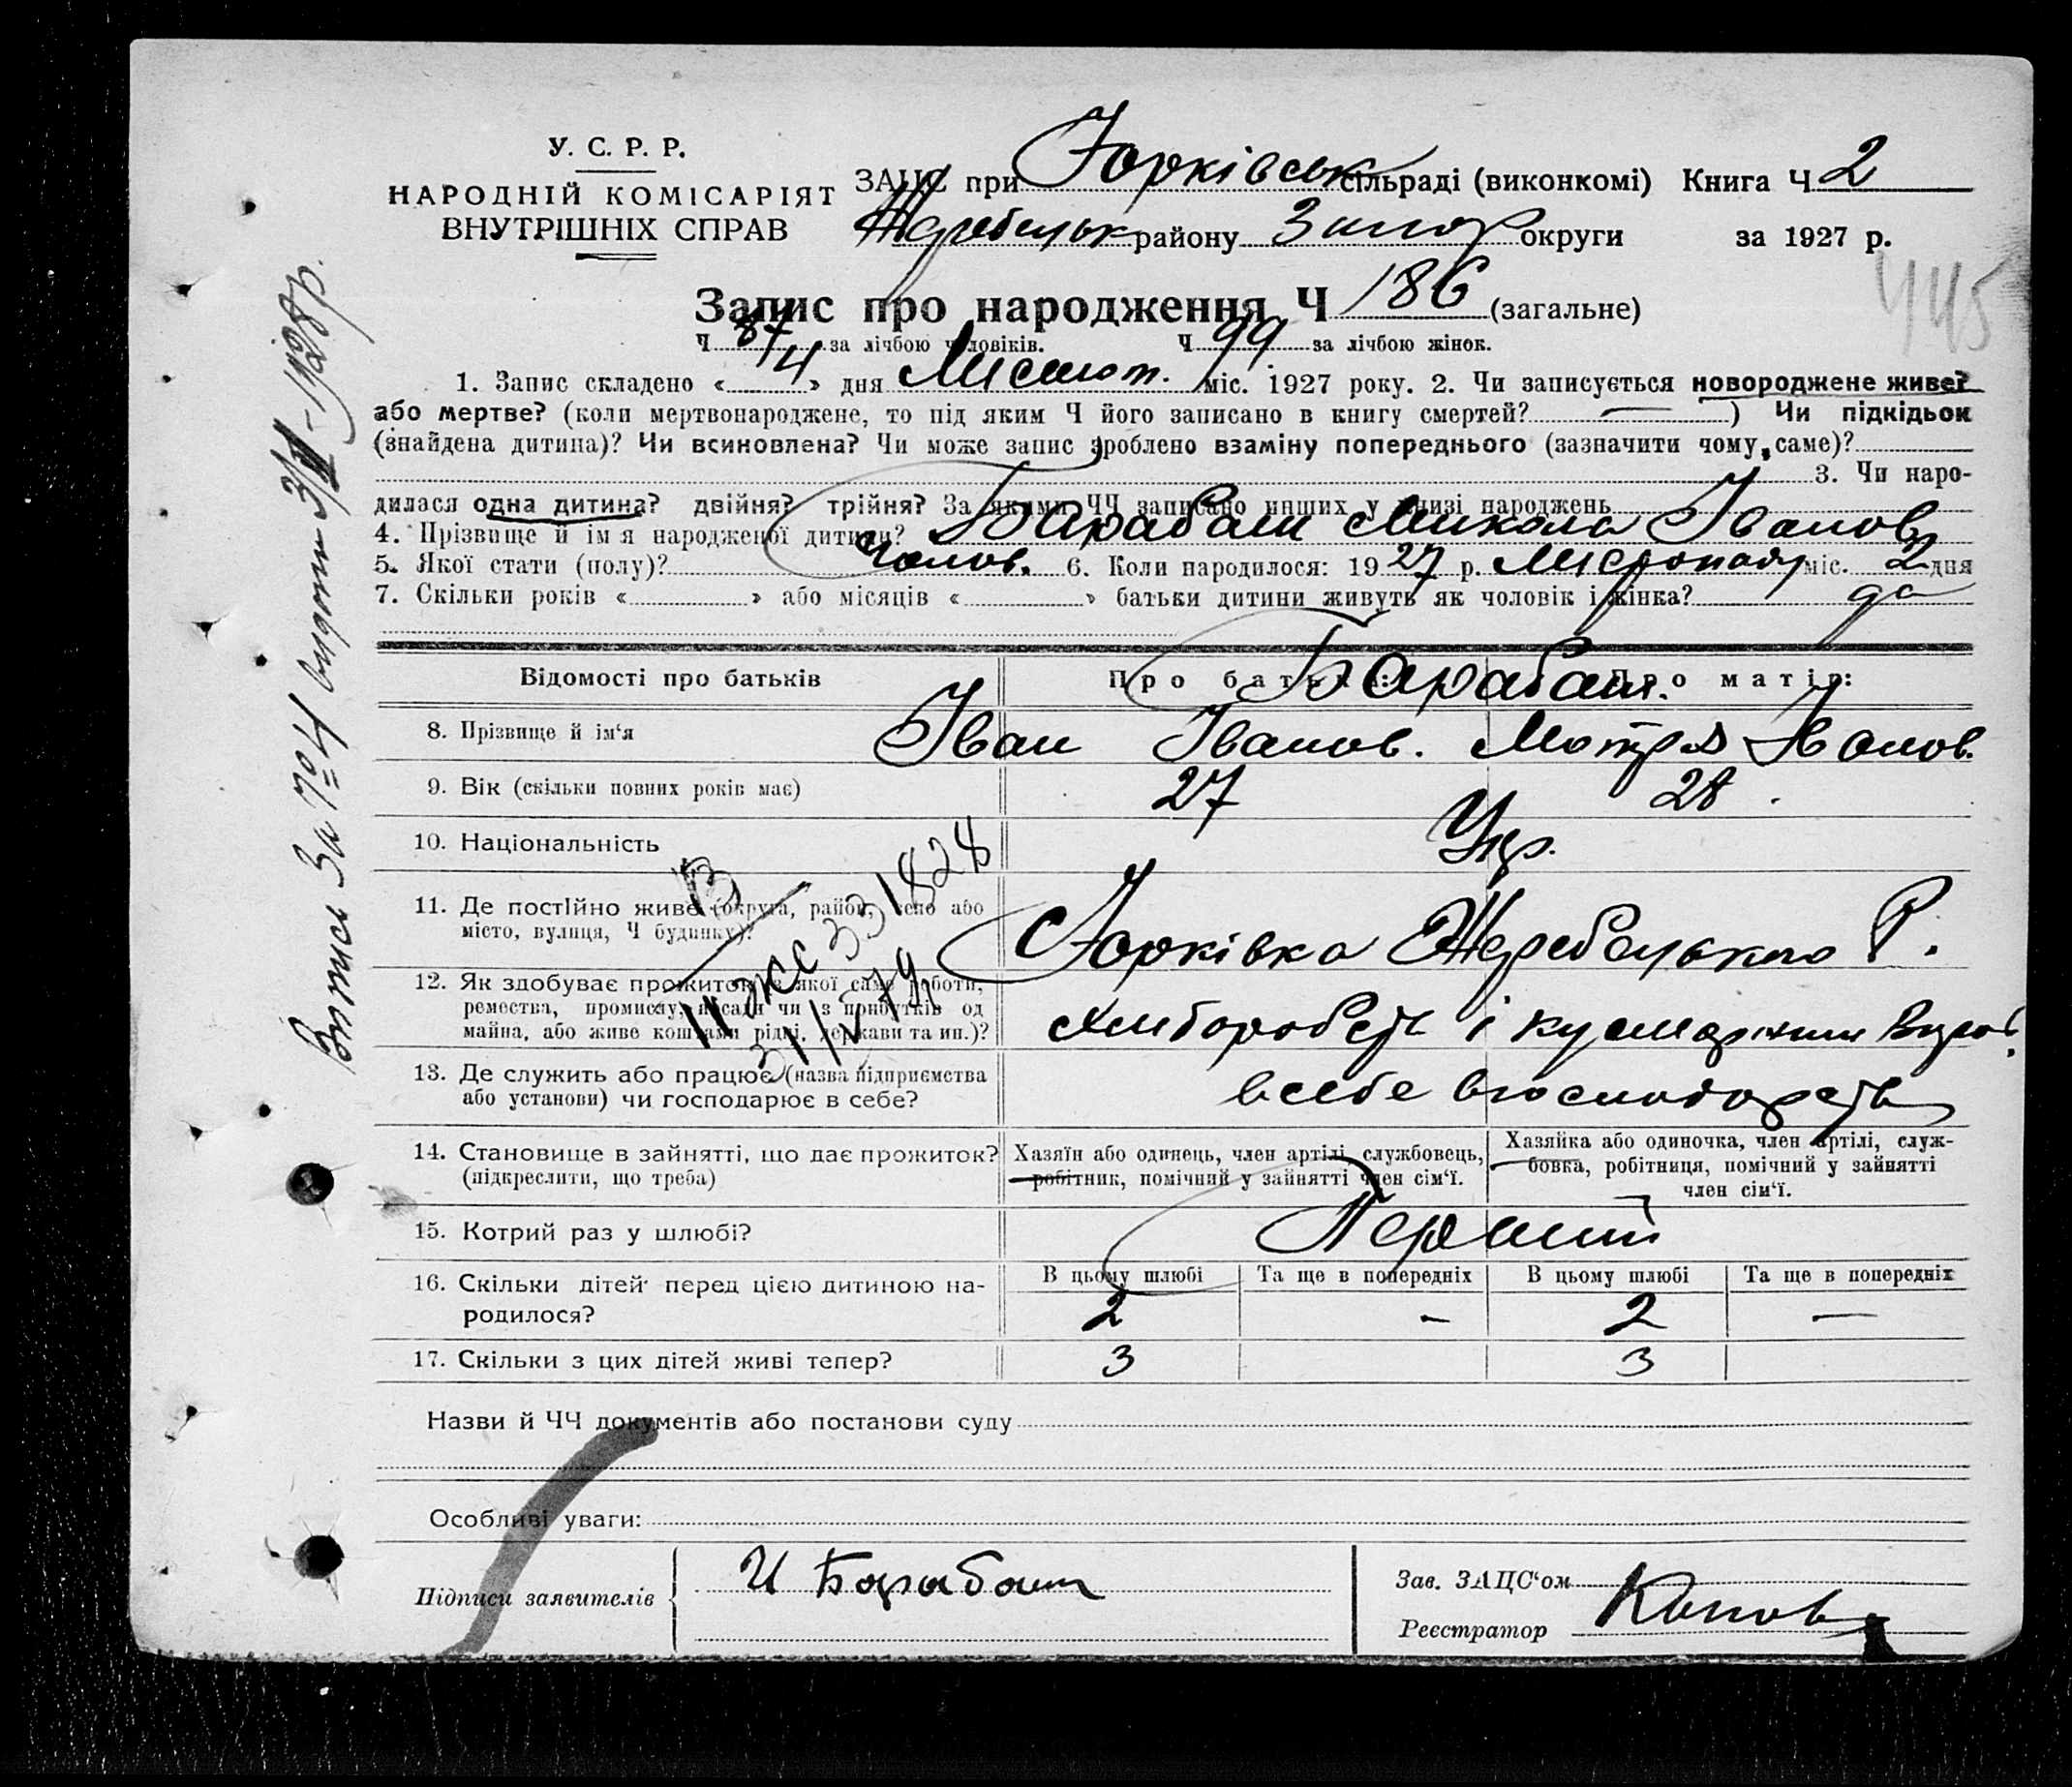 У. С. Р. Р.
НАРОДНІЙ КОМІСАРІЯТ
ВНУТРІШНІХ СПРАВ
ЗАЦС при Юрківськ сільраді (виконкомі) Книга Ч 2
Жеребецьк району Запор округи за 1927 р.
445
Запис про народження Ч 186 (загальне)
Ч 87 за лічбою чоловіків. Ч 99 за лічбою жінок.
1. Запис складено « 4 » дня Листоп. міс. 1927 року. 2. Чи записується новороджене живе?
або мертве? (коли мертвонароджене, то під яким Ч його записано в книгу смертей? — ) Чи підкідьок
(знайдена дитина)? Чи всиновлена? Чи може запис зроблено взаміну попереднього (зазначити чому саме)?
3. Чи наро-
дилася одна дитина? двійня? трійня? За якими ЧЧ записано инших у книзі народжень
4. Прізвище й ім'я народженої дитини? Барабаш Микола Іванов
5. Якої стати (полу)? Чолов. 6. Коли народилося: 1927 р. Листопаду міс. 2 дня
7. Скільки років « » або місяців « » батьки дитини живуть як чоловік і жінка? да
Відомості про батьків Про батька: Про матір:
Барабаш.
8. Прізвище й ім'я Іван Іванов. Мотря Іванов.
9. Вік (скільки повних років має) 27 28
10. Національність Укр.
11. Де постійно живе (округа, район, село або
місто, вулиця, Ч будинку)? Юрківка Жеребецького Р.
12. Як здобуває прожиток (з якої саме роботи,
ремества, промислу, посади чи з прибутків од
майна, або живе коштами рідні, держави та ин.)? Хліборобств і
13. Де служить або працює (назва підприємства
або установи) чи господарює в себе? в себе в господарств
14. Становище в зайнятті, що дає прожиток?
(підкреслити, що треба)
Хазяїн або одинець, член артілі, службовець,
робітник, помічний у зайнятті член сім'ї.
Хазяйка або одиночка, член артілі, служ-
бовка, робітниця, помічний у зайнятті
член сім'ї.
15. Котрий раз у шлюбі? Перший
16. Скільки дітей перед цією дитиною на-
родилося?
В цьому шлюбі Та ще в попередніх В цьому шлюбі Та ще в попередніх
2 – 2 —
17. Скільки з цих дітей живі тепер? 3 3
Назви й ЧЧ документів або постанови суду
Особливі уваги:
Підписи заявителів И Барабаш
Зав. ЗАЦС'ом
Реєстратор
Выпись За № 4 видати 3/II-1928р.